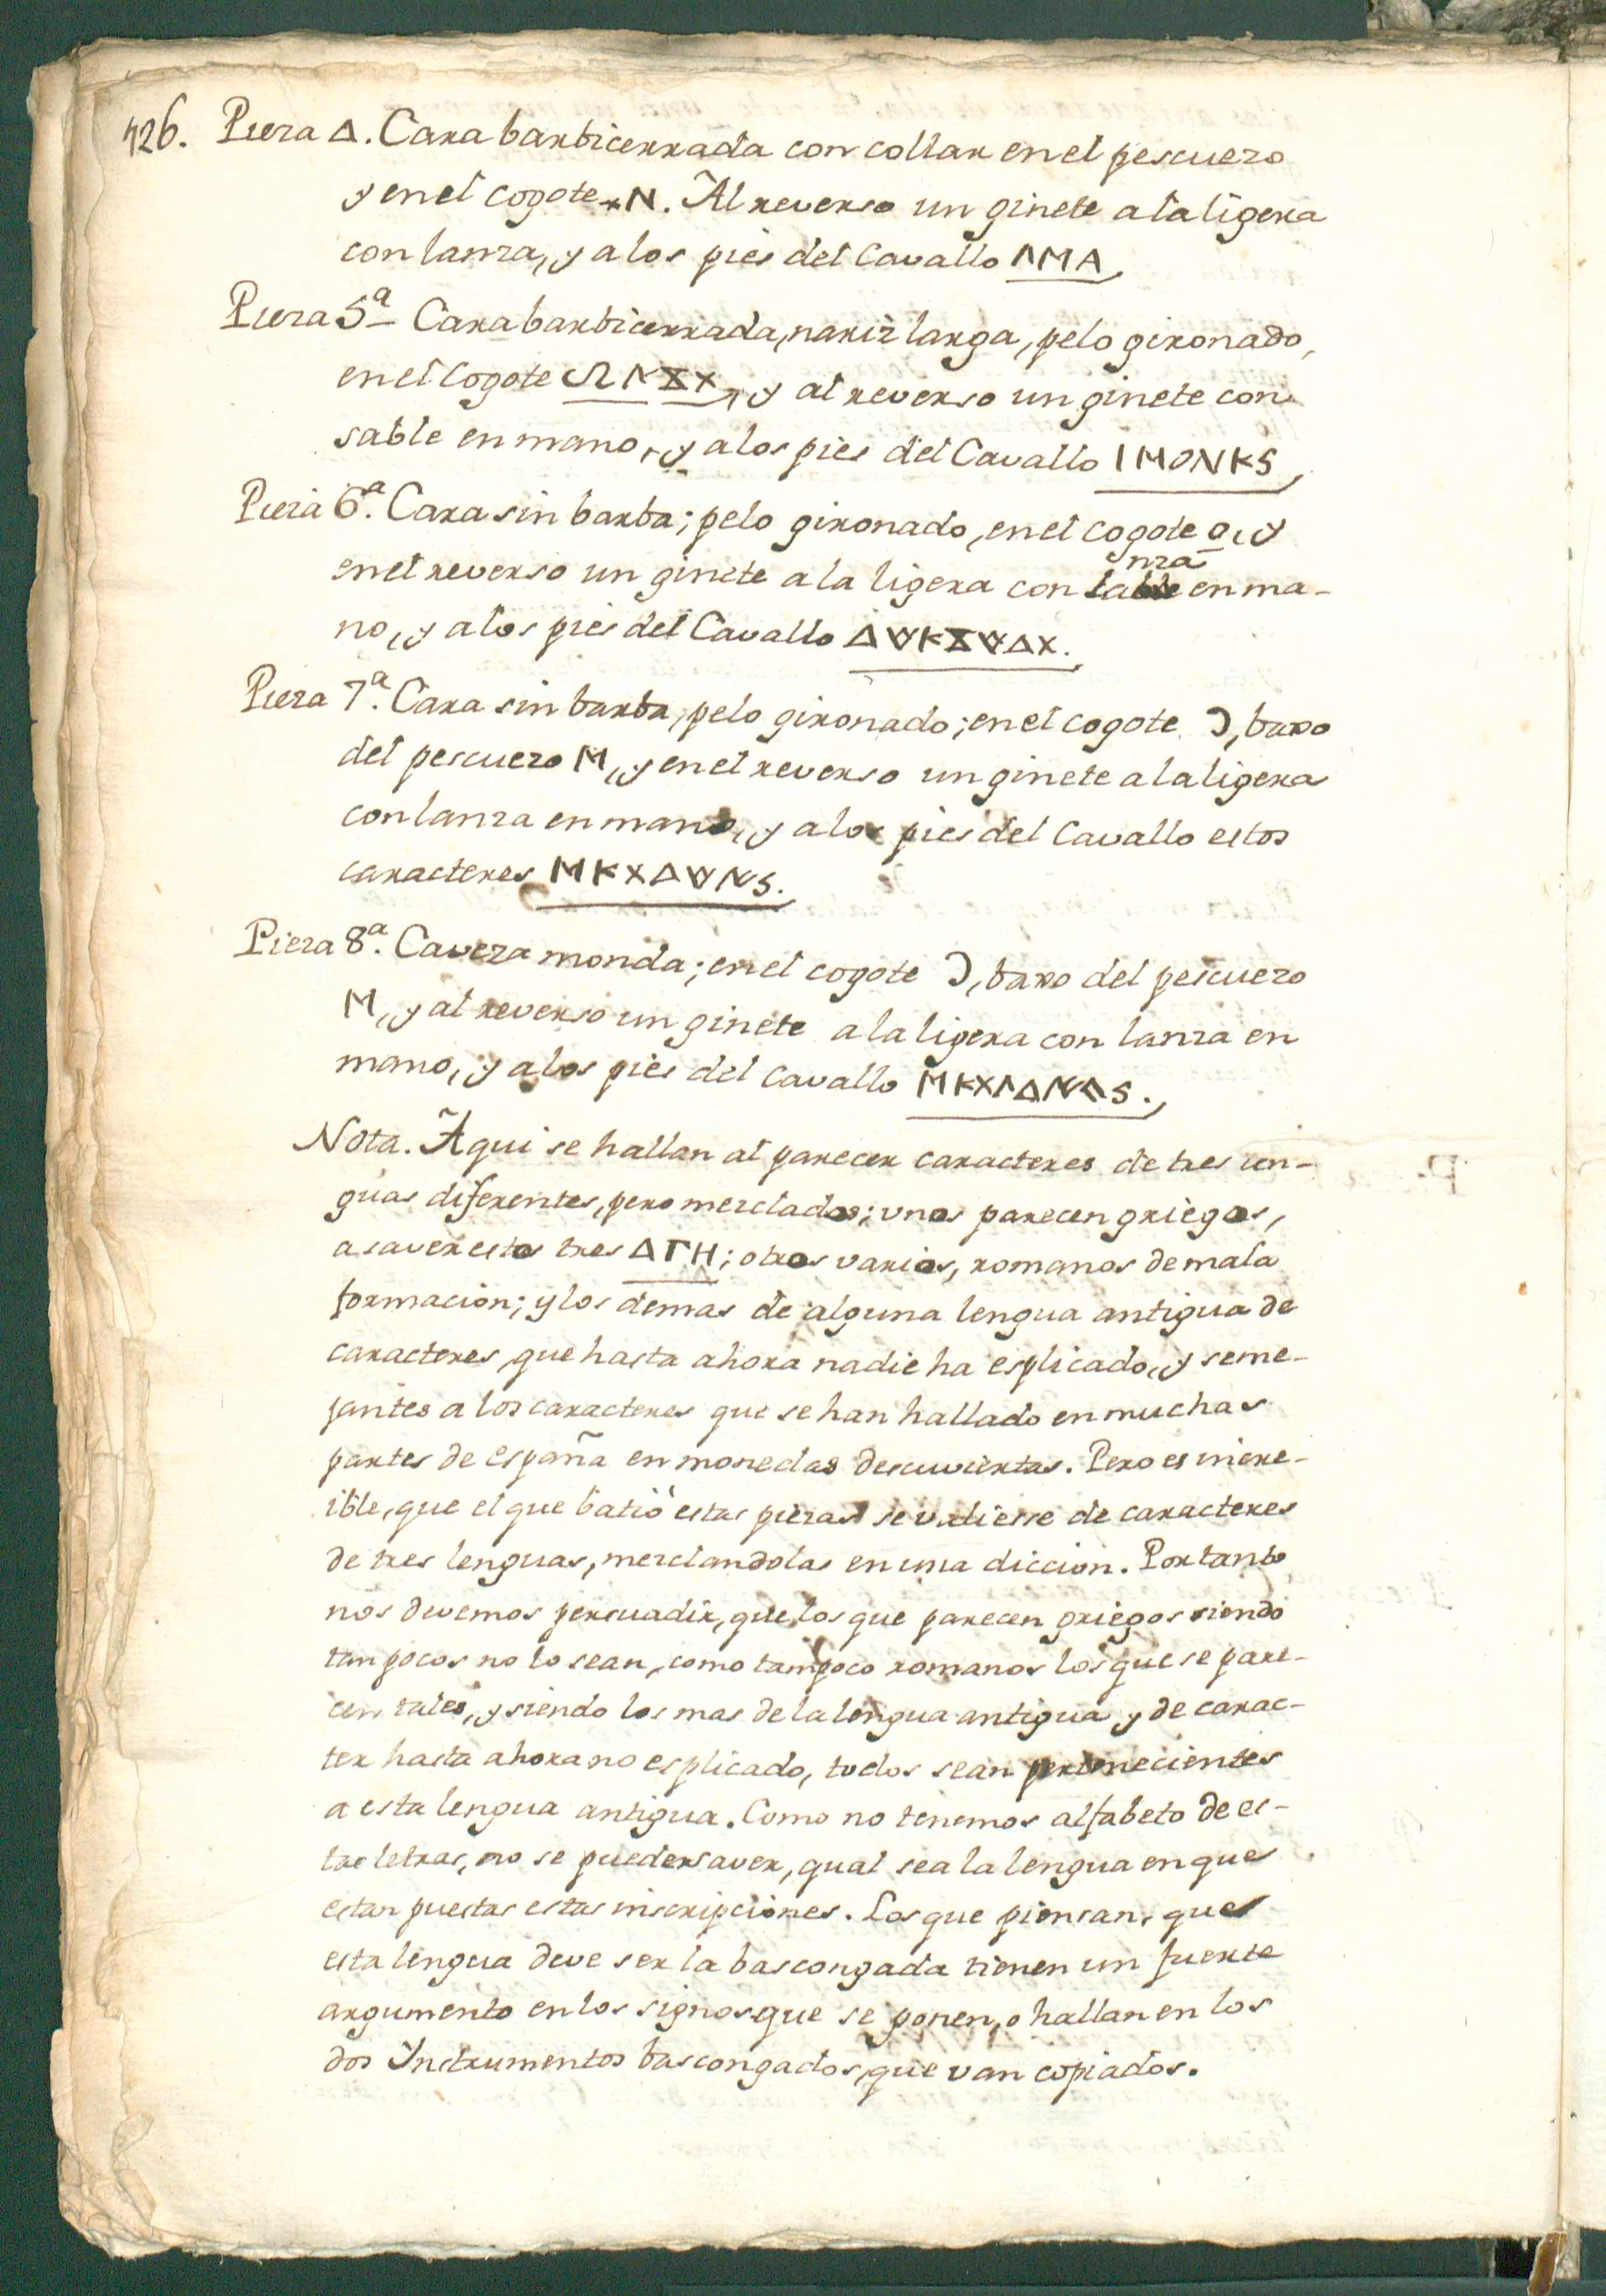 426. Pieza Δ. Cara barbicerrada con collar en el pescuezo
y en el cogote xN. Al reverso un ginete a la ligera
con lanza, y a los pies del Cavallo ΛMA,
Pieza 5ª Cara barbicerrada, nariz larga, pelo gironado,
en el cogote ΩNXX, y al reverso un ginete con
sable en mano, y a los pies del Cavallo IMONKS,
Pieza 6ª. Cara sin barba; pelo gironado, en el cogote o, y
nza
en el reverso un ginete a la ligera con la en ma-
no, y a los pies del Cavallo Δ∀KX∀ΔX.
Pieza 7ª. Cara sin barba, pelo gironado; en el cogote Ɔ, baxo
del pescuezo M, y en el reverso un ginete a la ligera
con lanza en mano, y a los pies del Cavallo estos
caracteres MKXΔ∀NS.
Pieza 8ª. Caveza monda; en el cogote Ɔ, baxo del pescuezo
M, y al reverso un ginete a la ligera con lanza en
mano, y a los pies del Cavallo MKXΛΔNΛS.
Nota. Aqui se hallan al parecer caracteres de tres len-
guas diferentes, pero mezclados; unos parecen griegos,
a saver estos tres ΔΓH; otros varios, romanos de mala
formacion; y los demas de alguna lengua antigua de
caracteres, que hasta ahora nadie ha esplicado, y seme-
jantes a los caracteres que se han hallado en muchas
partes de españa en monedas descuviertas. Pero es incre-
ible, que el que batió estas piezas se valiesse de caracteres
de tres lenguas, mezclandolas en una diccion. Por tanto
nos devemos persuadir, que los que parecen griegos siendo
tan pocos no lo sean, como tampoco romanos los que se pare-
cen tales, y siendo los mas de la lengua antigua y de carac-
ter hasta ahora no esplicado, todos sean pertenecientes
a esta lengua antigua. Como no tenemos alfabeto de es-
tas letras, no se puede saver, qual sea la lengua en que
estan puestas estas inscripciones. Los que piensan, que
esta lengua deve ser la bascongada tienen un fuerte
argumento en los signos que se ponen, o hallan en los
dos Instrumentos bascongados, que van copiados.